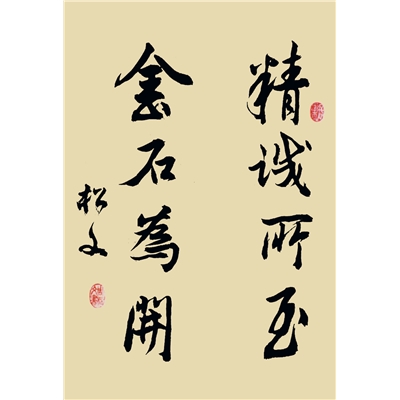 精诚所至
金石為開
松文